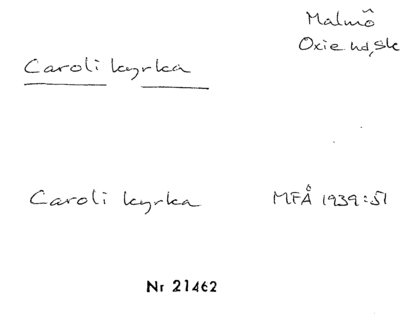 Malmö
Oxie hd, Sk
Caroli kyrka
Caroli kyrka MFÅ 1939:51
Nr 21462